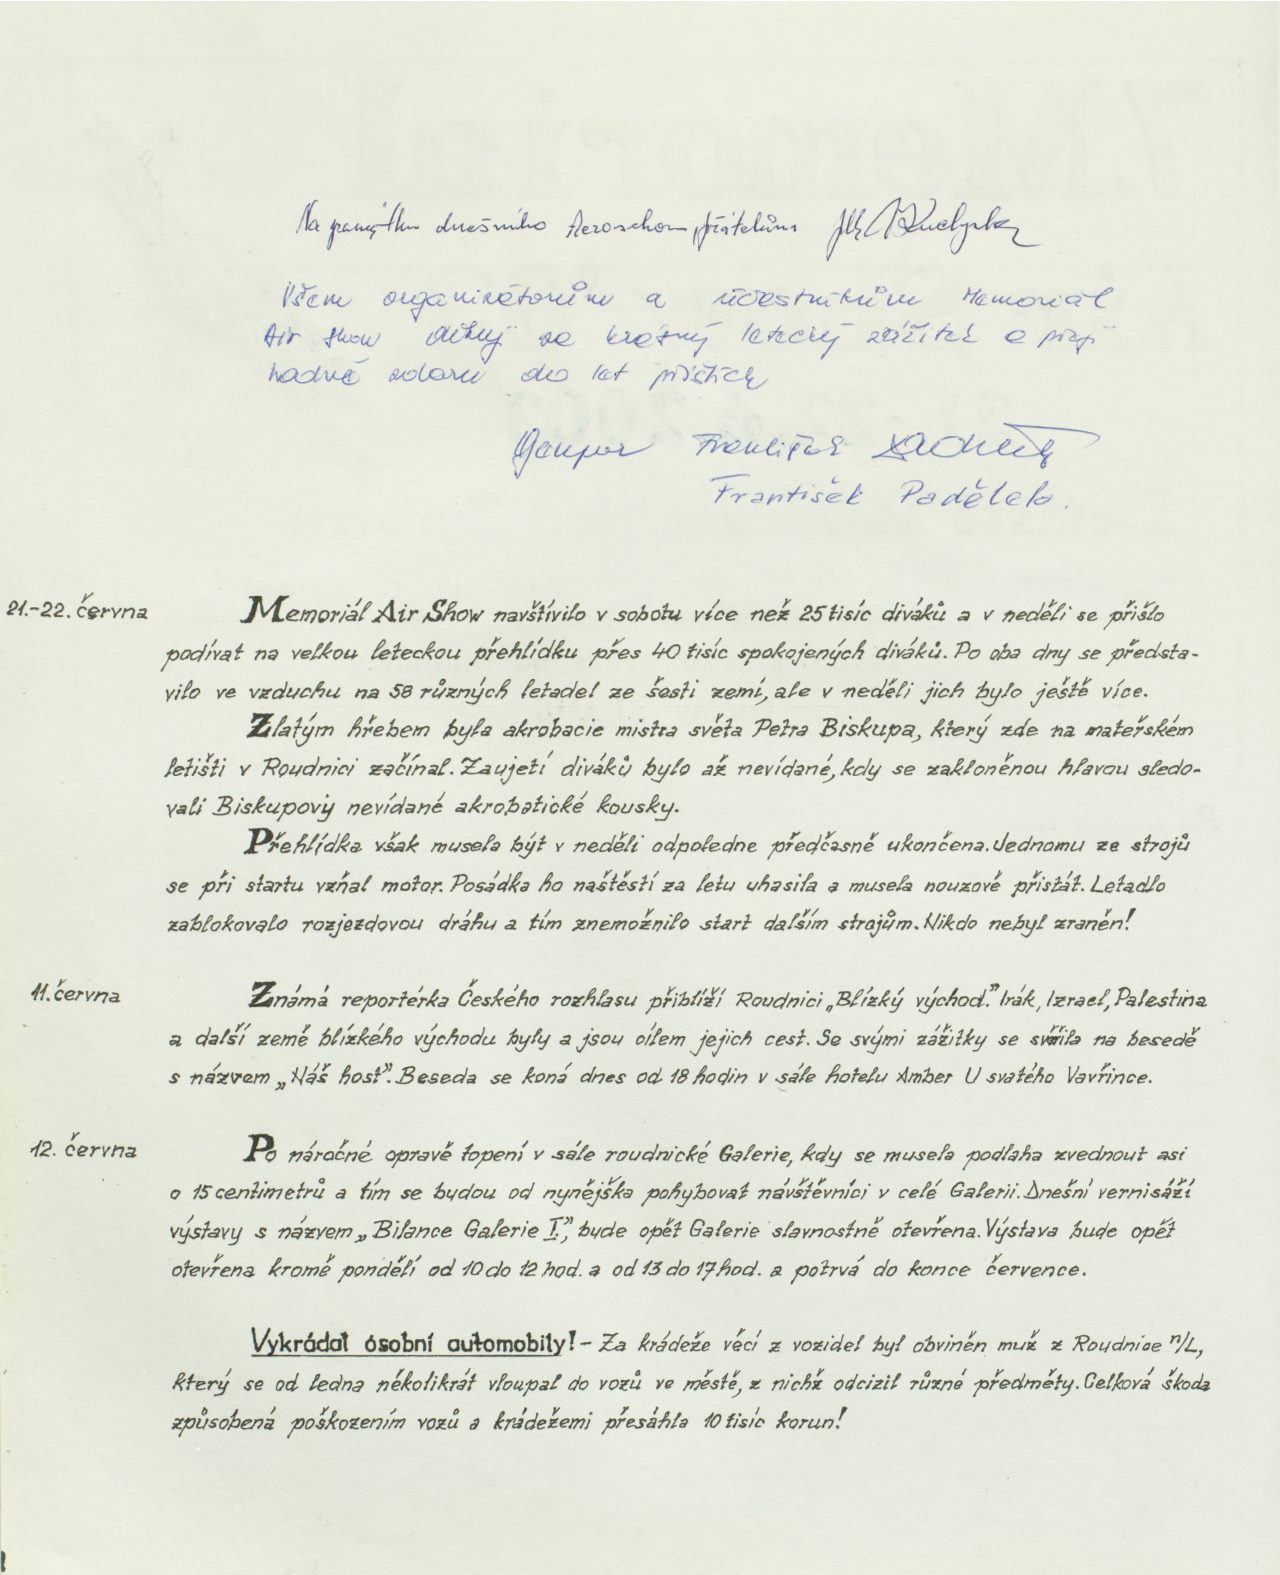 Na památku dnešního Aeroschow přátelům
Všem organizátorům a účastníkům Memorial
Air show děkuji za krásný letecký zážitek a přeji
hodně zdaru do let příštích
František
František Padělek.
21.-22. června Memoriál Air Show navštívilo v sobotu více než 25 tisíc diváků a v neděli se přišlo
podívat na velkou leteckou přehlídku přes 40 tisíc spokojených diváků. Po oba dny se předsta-
vilo ve vzduchu na 58 různých letadel ze šesti zemí, ale v neděli jich bylo ještě více.
Zlatým hřebem byla akrobacie mistra světa Petra Biskupa, který zde na mateřském
letišti v Roudnici začínal. Zaujetí diváků bylo až nevídané, kdy se zakloněnou hlavou sledo-
vali Biskupovy nevídané akrobatické kousky.
Přehlídka však musela být v neděli odpoledne předčasně ukončena. Jednomu ze strojů
se při startu vzňal motor. Posádka ho naštěstí za letu uhasila a musela nouzově přistát. Letadlo
zablokovalo rozjezdovou dráhu a tím znemožnilo start dalším strojům. Nikdo nebyl zraněn!
11. června Známá reportérka Českého rozhlasu přiblíží Roudnici „Blízký východ." Irák, Izrael, Palestina
a další země blízkého východu byly a jsou cílem jejich cest. Se svými zážitky se svěřila na besedě
s názvem „Náš host". Beseda se koná dnes od 18 hodin v sále hotelu Amber U svatého Vavřince.
12. června Po náročné opravě topení v sále roudnické Galerie, kdy se musela podlaha zvednout asi
o 15 centimetrů a tím se budou od nynějška pohybovat návštěvníci v celé Galerii. Dnešní vernisáží
výstavy s názvem „Bilance Galerie I.", bude opět Galerie slavnostně otevřena. Výstava bude opět
otevřena kromě pondělí od 10 do 12 hod. a od 13 do 17 hod. a potrvá do konce července.
Vykrádal osobní automobily! - Za krádeže věcí z vozidel byl obviněn muž z Roudnice n/L,
který se od ledna několikrát vloupal do vozů ve městě, z nichž odcizil různé předměty. Celková škoda
způsobená poškozením vozů a krádežemi přesáhla 10 tisíc korun!